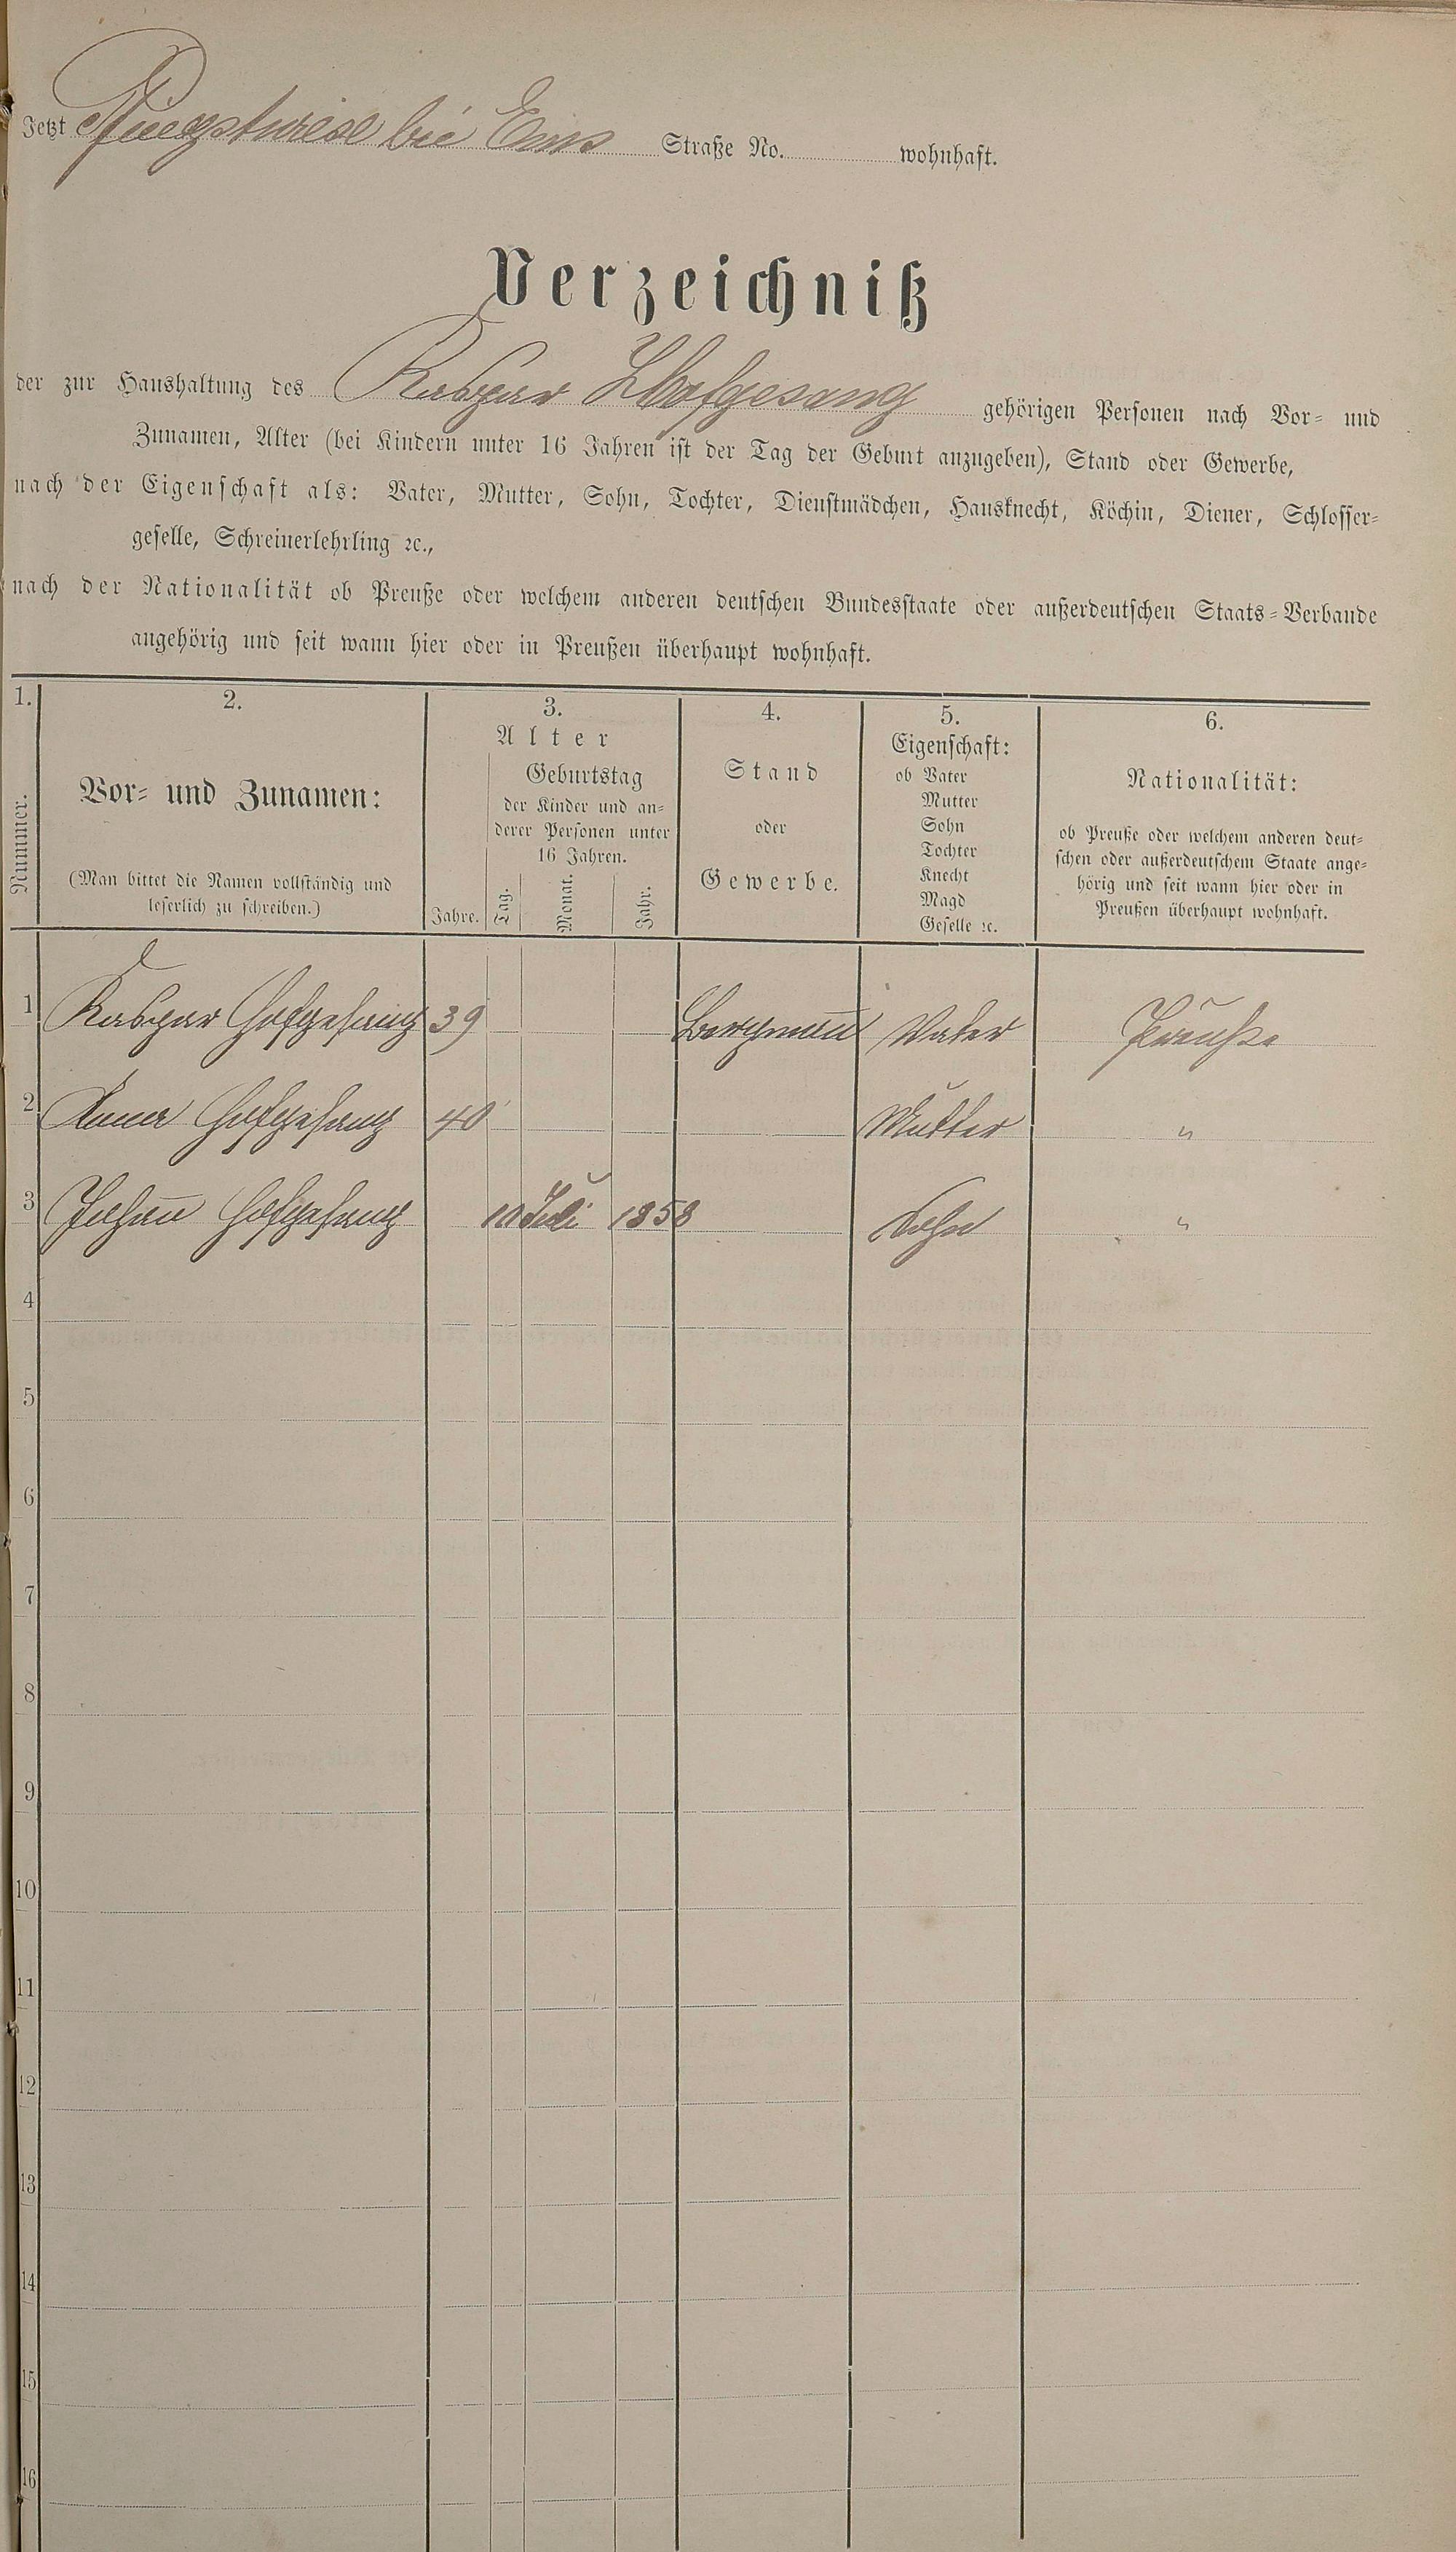 Jetzt Pfingstwiese bei Ems Straße No. wohnhaft.
Verzeichniß
der zur Haushaltung des Kaspar Hofgesang gehörigen Personen nach Vor- und
Zunamen, Alter (bei Kindern unter 16 Jahren ist der Tag der Geburt anzugeben), Stand oder Gewerbe,
nach der Eigenschaft als: Vater, Mutter, Sohn, Tochter, Dienstmädchen, Hausknecht, Köchin, Diener, Schlosser-
geselle, Schreinerlehrling ꝛc.,
nach der Nationalität ob Preuße oder welchem anderen deutschen Bundesstaate oder außerdeutschen Staats-Verbande
angehörig und seit wann hier oder in Preußen überhaupt wohnhaft.
1. 2. 3. 4. 5. 6.
Nummer.
Vor- und Zunamen:
(Man bittet die Namen vollständig und
leserlich zu schreiben.)
Alter
Jahre.
Geburtstag
der Kinder und an-
derer Personen unter
16 Jahren.
Tag. Monat. Jahr.
Stand
oder
Gewerbe.
Eigenschaft:
ob Vater
Mutter
Sohn
Tochter
Knecht
Magd
Geselle ꝛc.
Nationalität:
ob Preuße oder welchem anderen deut-
schen oder außerdeutschem Staate ange-
hörig und seit wann hier oder in
Preußen überhaupt wohnhaft.
1 Kaspar Hofgesang 39 Bergmann Vater Preuße
2 Anna Hofgesang 40 Mutter "
3 Johann Hofgesang 10 Juli 1858 Sohn "
4
5
6
7
8
9
10
11
12
13
14
15
16